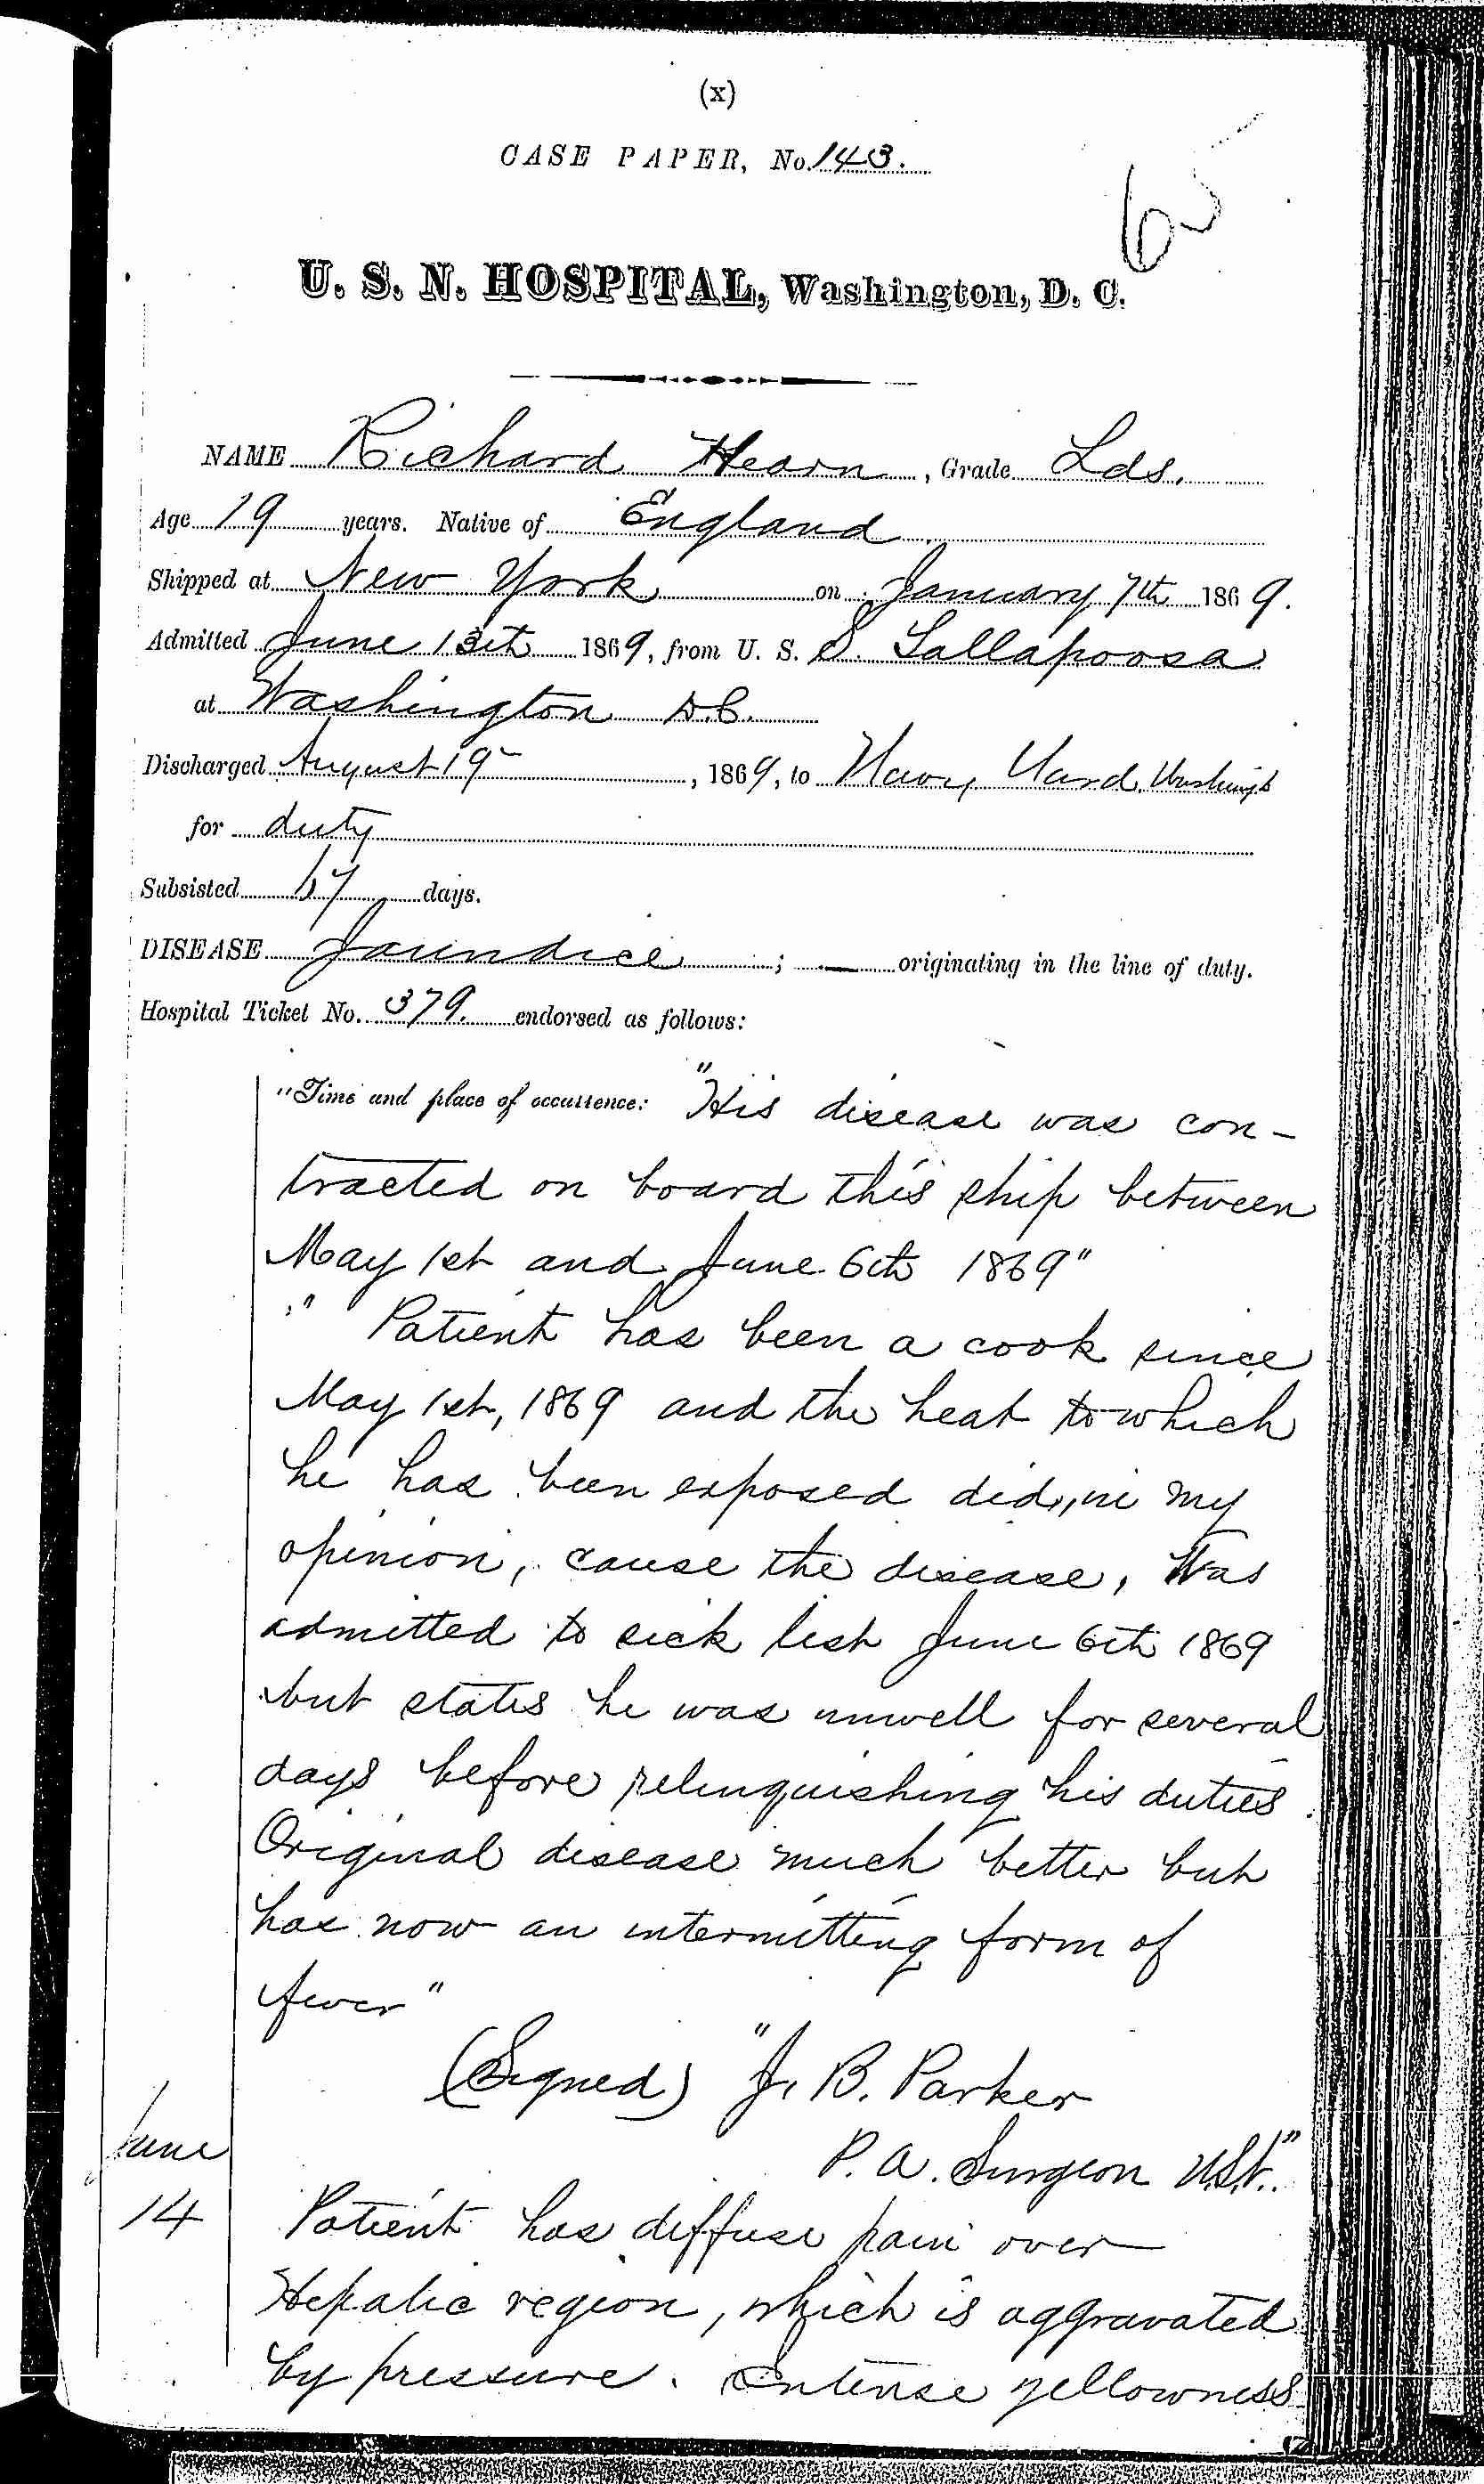 (x)
CASE PAPER, No. 143.
65
U. S. N. HOSPITAL, Washington, D. C.
NAME Richard Hearn, Grade Lds.
Age 19 years. Native of England.
Shipped at New York on January 7th 1869.
Admitted June 13th 1869, from U. S. S. Tallapoosa
at Washington D.C.
Discharged August 19, 1869, to Navy Yard, Washingt
for duty
Subsisted 67 days.
DISEASE Jaundice; — originating in the line of duty.
Hospital Ticket No. 379. endorsed as follows:
"Time and place of occurrence: "His disease was con-
tracted on board this ship between
May 1st and June 6th 1869"
" Patient has been a cook since
May 1st, 1869 and the heat to which
he has been exposed did, in my
opinion, cause the disease, Was
admitted to sick list June 6th 1869
but states he was unwell for several
days before relinquishing his duties.
Original disease much better but
has now an intermitting form of
fever"
(Signed) "J. B. Parker
P. A. Surgeon U.S.N."
June
14 Patient has diffuse pain over
Hepatic region, which is aggravated
by pressure. Intense yellowness